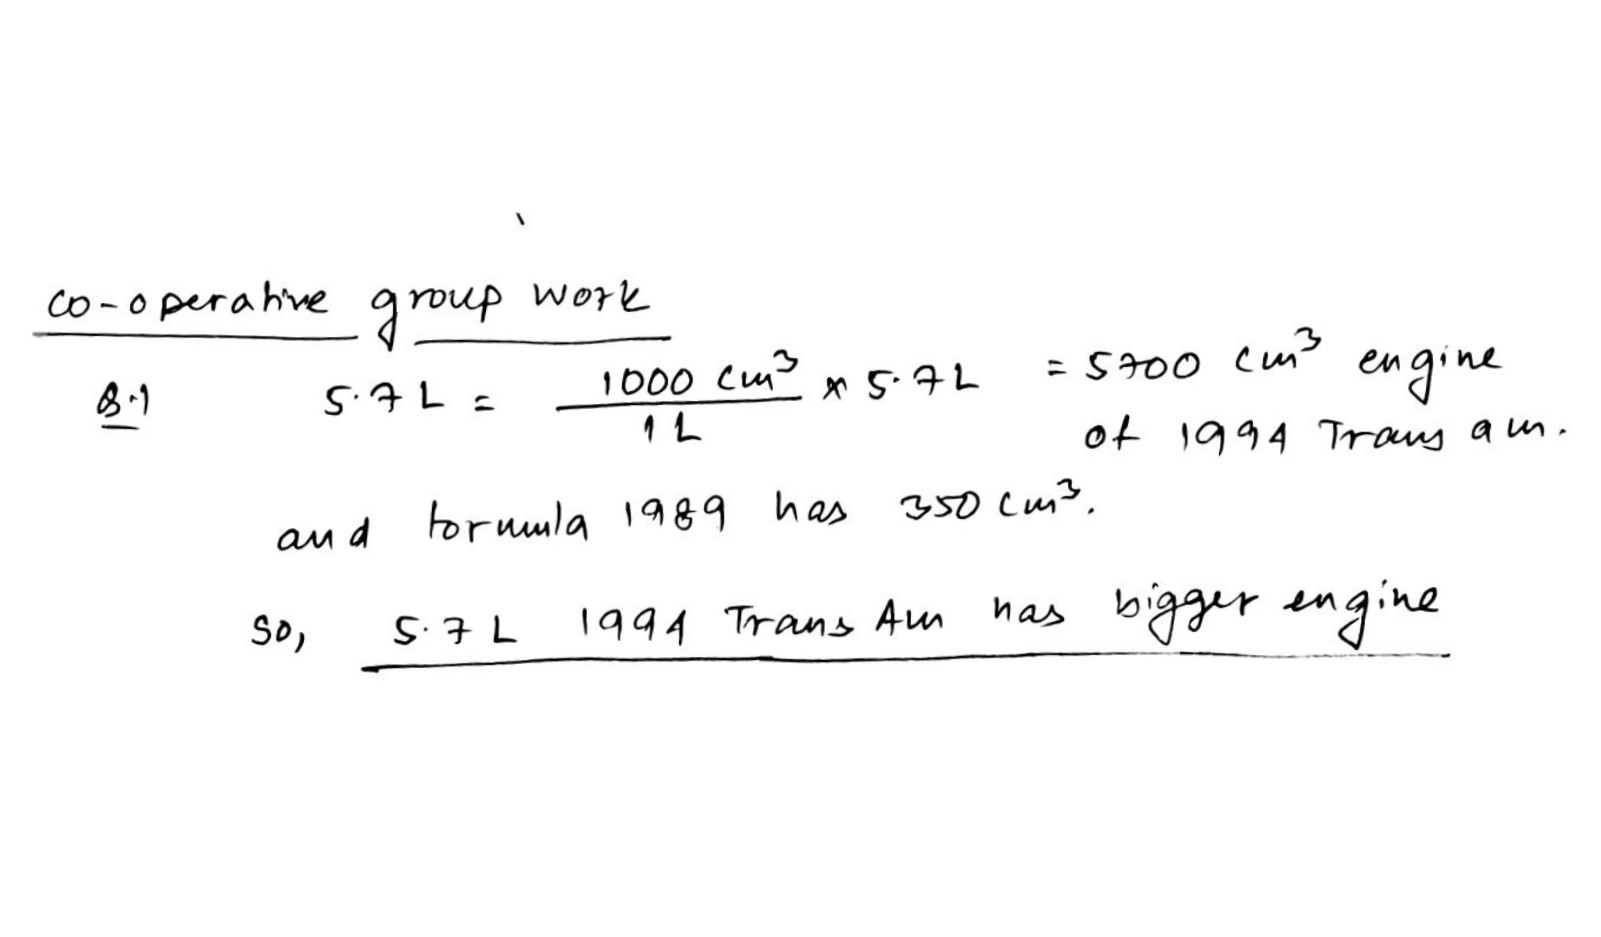 co-operative group work
Q.1 5.7L = 1000 cm³ / 1L × 5.7L = 5700 cm³ engine
of 1994 Trans am.
and formula 1989 has 350 cm³.
so, 5.7L 1994 Trans Am has bigger engine